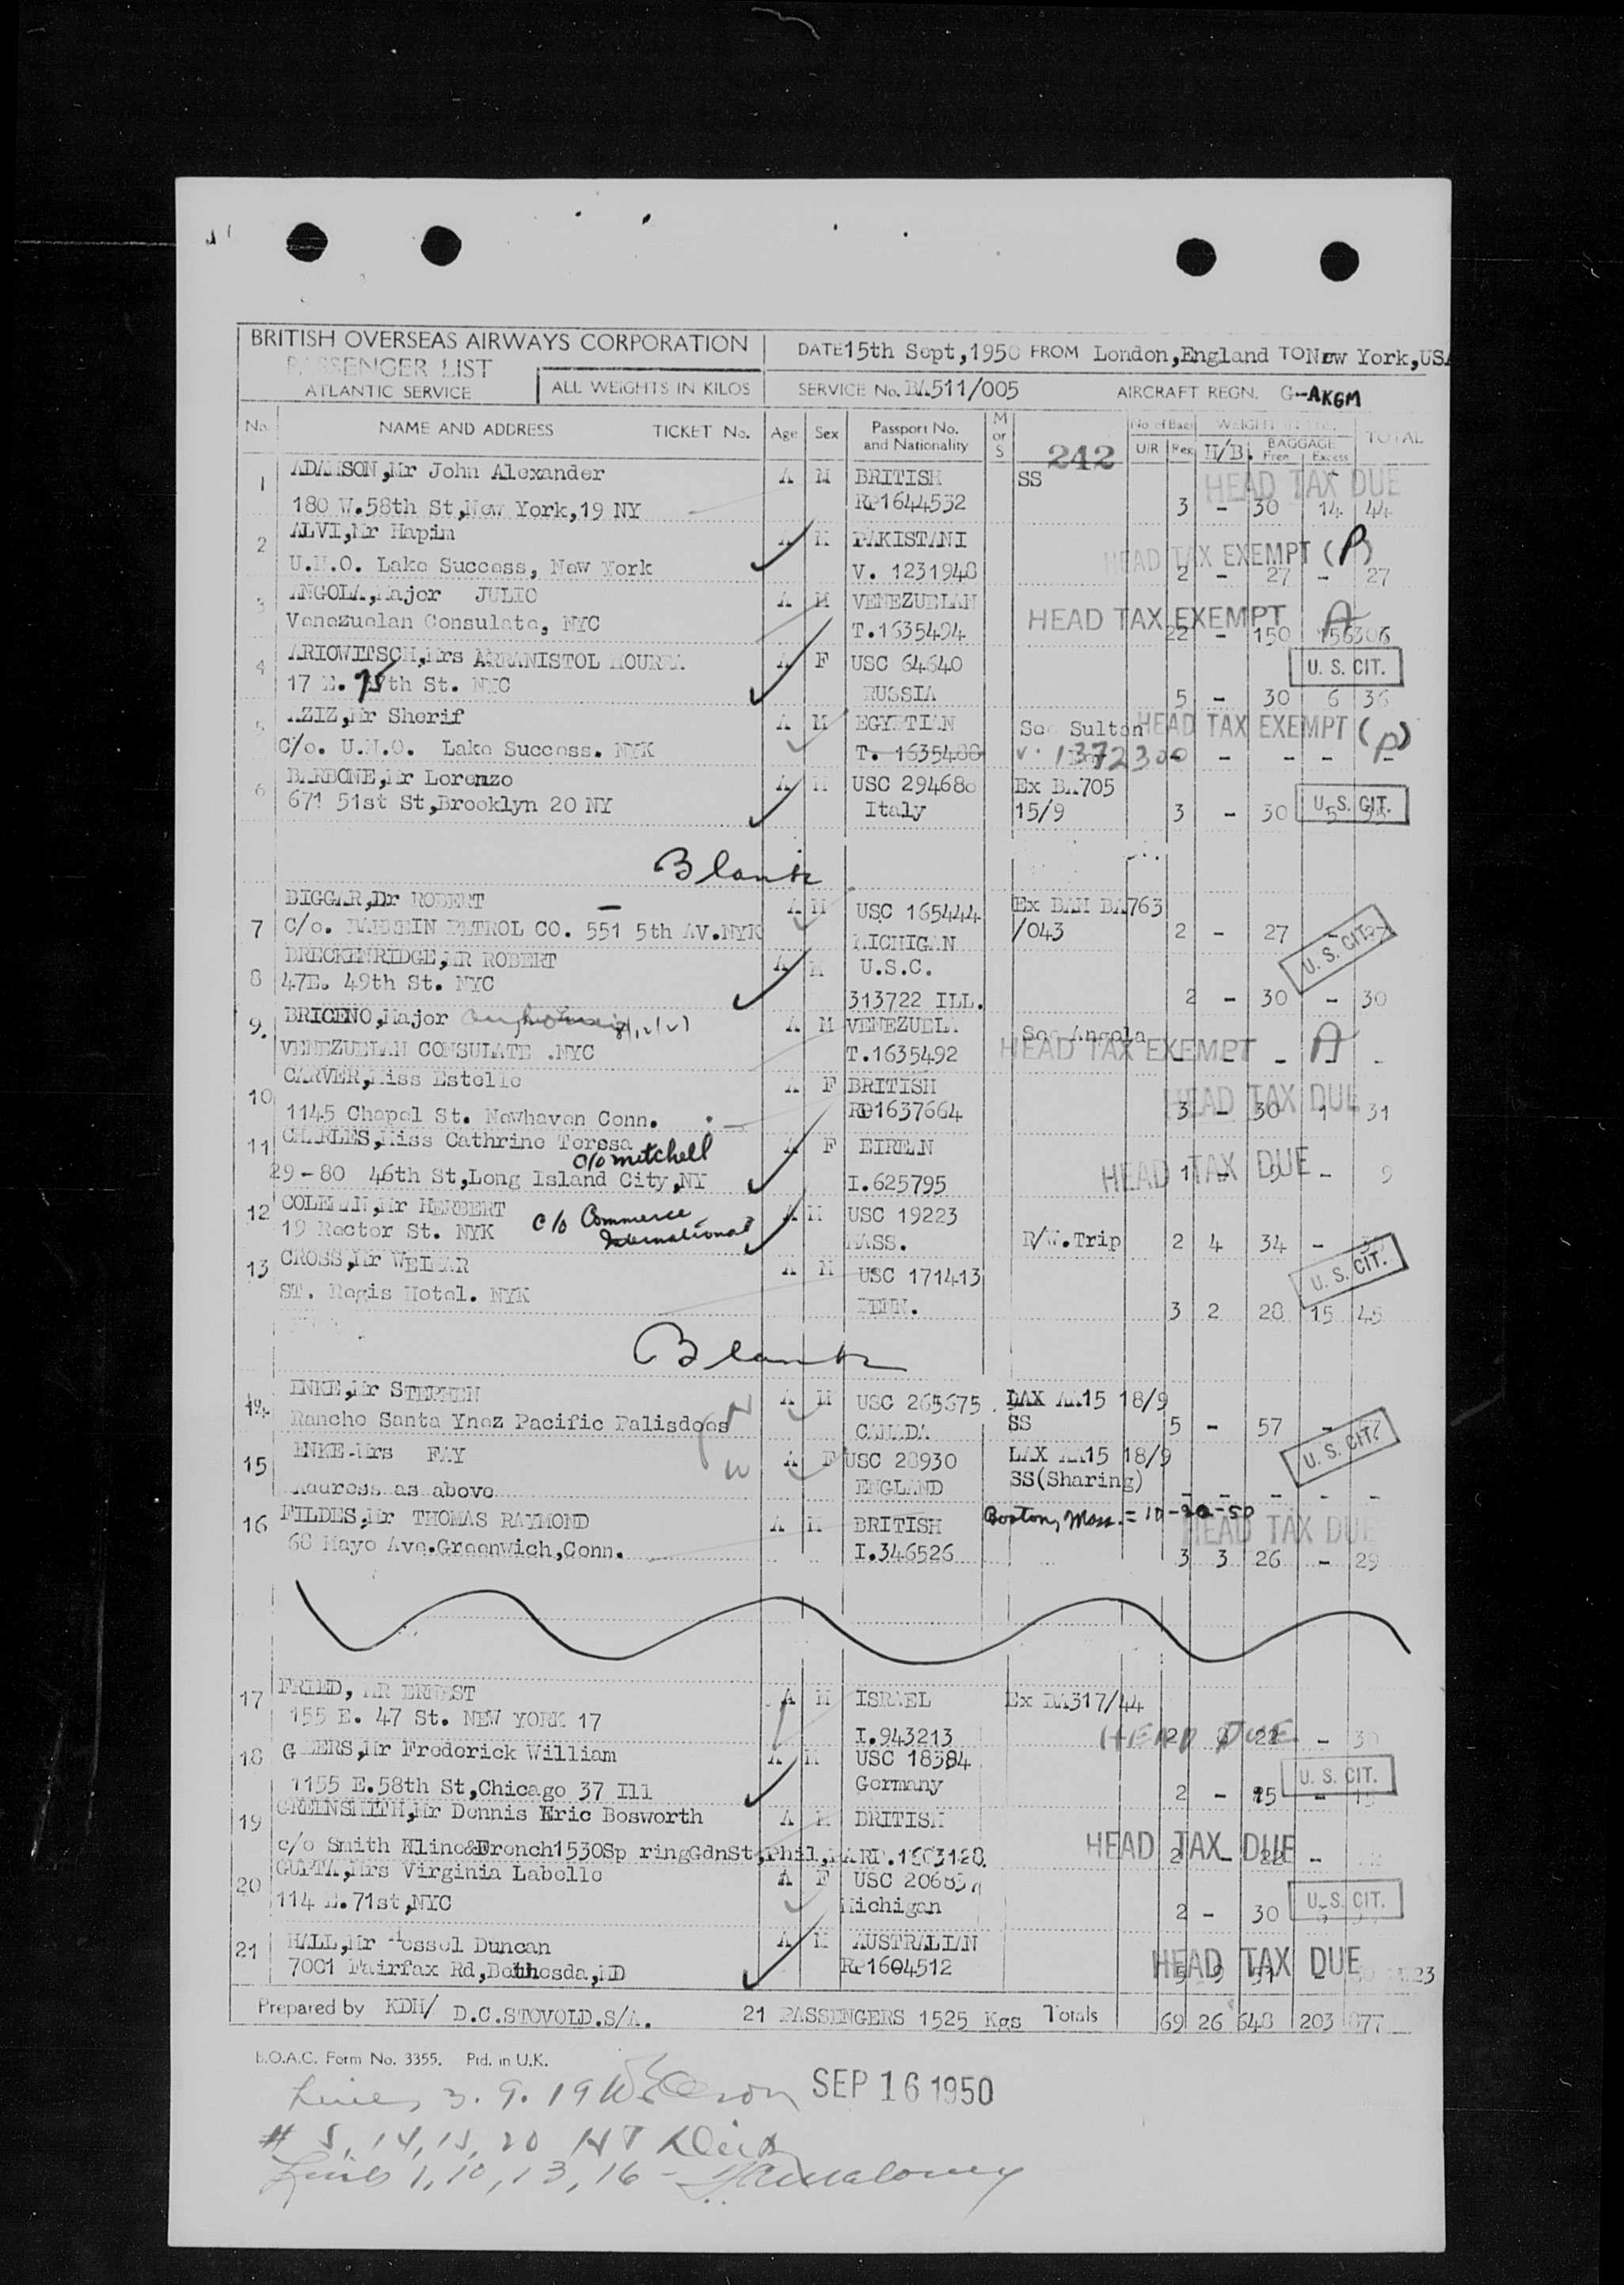 BRITISH OVERSEAS AIRWAYS CORPORATION
PASSENGER LIST
ATLANTIC SERVICE
ALL WEIGHTS IN KILOS
DATE 15th Sept,1950 FROM London,England TO New York,USA
SERVICE No. BA511/005 AIRCRAFT REGN. G-AKGM
No. NAME AND ADDRESS TICKET No. Age Sex Passport No. and Nationality M or S 242 No of Bags U/R Rex H/B. BAGGAGE Free Excess TOTAL
1 ADAMSON,Mr John Alexander A M BRITISH SS HEAD TAX DUE
180 W.58th St,New York,19 NY RP1644532 3 - 30 14 44
2 ALVI,Mr Hapim A M PAKISTANI HEAD TAX EXEMPT (P)
U.N.O. Lake Success, New York V. 1231948 2 - 27 - 27
3 ANGOLA,Major JULIO A M VENEZUELAN HEAD TAX EXEMPT A
Venezuelan Consulate, NYC T.1635494 22 - 150 156 306
4 ARIOWITSCH,Mrs A F USC 64640 U. S. CIT.
17 E. th St. NYC RUSSIA 5 - 30 6 36
5 AZIZ,Mr Sherif A M EGYPTIAN See Sulton HEAD TAX EXEMPT (P)
c/o. U.N.O. Lake Success. NYK T. 1635488 v. 1372300 - - - -
6 BARBONE,Mr Lorenzo A M USC 294680 Ex BA705
671 51st St,Brooklyn 20 NY Italy 15/9 3 - 30 5 35 U. S. CIT.
Blank
BIGGAR,Dr ROBERT A M USC 165444 Ex BAH BA763
7 C/o. BAHREIN PETROL CO. 551 5th AV.NYK MICHIGAN /043 2 - 27 - 27 U. S. CIT.
BRECKENRIDGE,MR ROBERT A M U.S.C.
8 47E. 49th St. NYC 313722 ILL. 2 - 30 - 30
9. BRICENO,Major A M VENEZUELA See Angola
VENEZUELAN CONSULATE .NYC T.1635492 HEAD TAX EXEMPT A - - - -
CARVER,Miss Estelle A F BRITISH HEAD TAX DUE
10 1145 Chapel St. Newhaven Conn. RP1637664 3 - 30 1 31
11 CHARLES,Miss Cathrine Teresa A F EIREAN
c/o mitchell
29-80 46th St,Long Island City,NY I.625795 HEAD TAX DUE 1 - 9 - 9
12 COLEMAN,Mr HERBERT A M USC 19223
19 Rector St. NYK c/o Commerce International MASS. R/W.Trip 2 4 34 -
13 CROSS,Mr WEIMAR A M USC 171413 U. S. CIT.
ST. Regis Hotel. NYK PENN. 3 2 28 15 45
Blank
14. ENKE,Mr STEPHEN A M USC 265675 LAX AA15 18/9
Rancho Santa Ynez Pacific Palisdoes CANADA SS 5 - 57 - 57 U. S. CIT.
15 ENKE Mrs FAY A F USC 28930 LAX AA15 18/9
Address as above ENGLAND SS(Sharing) - - - - -
16 FILDES,Mr THOMAS RAYMOND A M BRITISH Boston, Mass. = 10-20-50 HEAD TAX DUE
68 Mayo Ave.Greenwich,Conn. I.346526 3 3 26 - 29
17 FRIED, MR ERNEST A M ISRAEL Ex BA317/44
155 E. 47 St. NEW YORK 17 I.943213 HEAD DUE 2 8 22 - 30
18 G ERS,Mr Frederick William A M USC 18384 U. S. CIT.
1155 E.58th St,Chicago 37 Ill Germany 2 - 15 - 15
19 GREENSMITH,Mr Dennis Eric Bosworth A M BRITISH
c/o Smith Kline&French1530Sp ringGdnSt,Phil,PA RP.1603128 HEAD TAX DUE 2 - 22 -
20 GUPTA,Mrs Virginia Labelle A F USC 20683
114 E.71st,NYC Michigan 2 - 30 U.S. CIT.
21 HALL,Mr Hessel Duncan A M AUSTRALIAN
7001 Fairfax Rd,Bethesda,MD RP1604512 HEAD TAX DUE
Prepared by KDH/ D.C.STOVOLD.S/A. 21 PASSENGERS 1525 Kgs Totals 69 26 648 203 877
B.O.A.C. Form No. 3355. Ptd. in U.K.
Lines 3. 9. 19 SEP 16 1950
# 5, 14, 15, 20 HT
Lines 1, 10, 13, 16 -